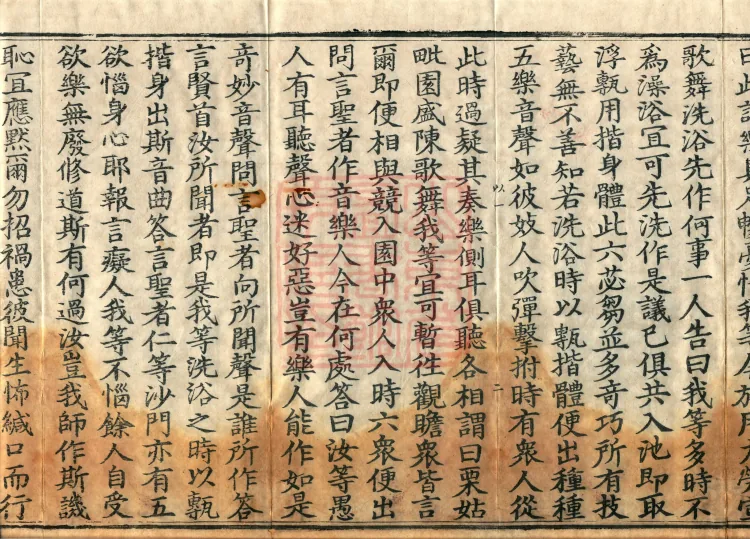 歌舞洗浴先作何事一人告曰我等多時不
爲澡浴冝可先洗作是議已俱共入池即取
浮甎用揩身體此六苾芻並多奇巧所有技
藝無不善知若洗浴時以甎揩體便出種種
五樂音聲如彼妓人吹彈擊拊時有衆人從
此時過疑其奏樂側耳俱聽各相謂曰栗姑
毗園盛陳歌舞我等冝可暫徃觀瞻衆皆言
爾即便相與競入園中衆人入時六衆便出
問言聖者作音樂人今在何處答曰汝等愚
人有耳聽聲心迷好惡豈有樂人能作如是
奇妙音聲問言聖者向所聞聲是誰所作答
言賢首汝所聞者即是我等洗浴之時以甎
揩身出斯音曲答言聖者仁等沙門亦有五
欲惱身心耶報言癡人我等不惱餘人自受
欲樂無廢修道斯有何過汝豈我師作斯譏
恥冝應默爾勿招禍患彼聞生怖緘口而行